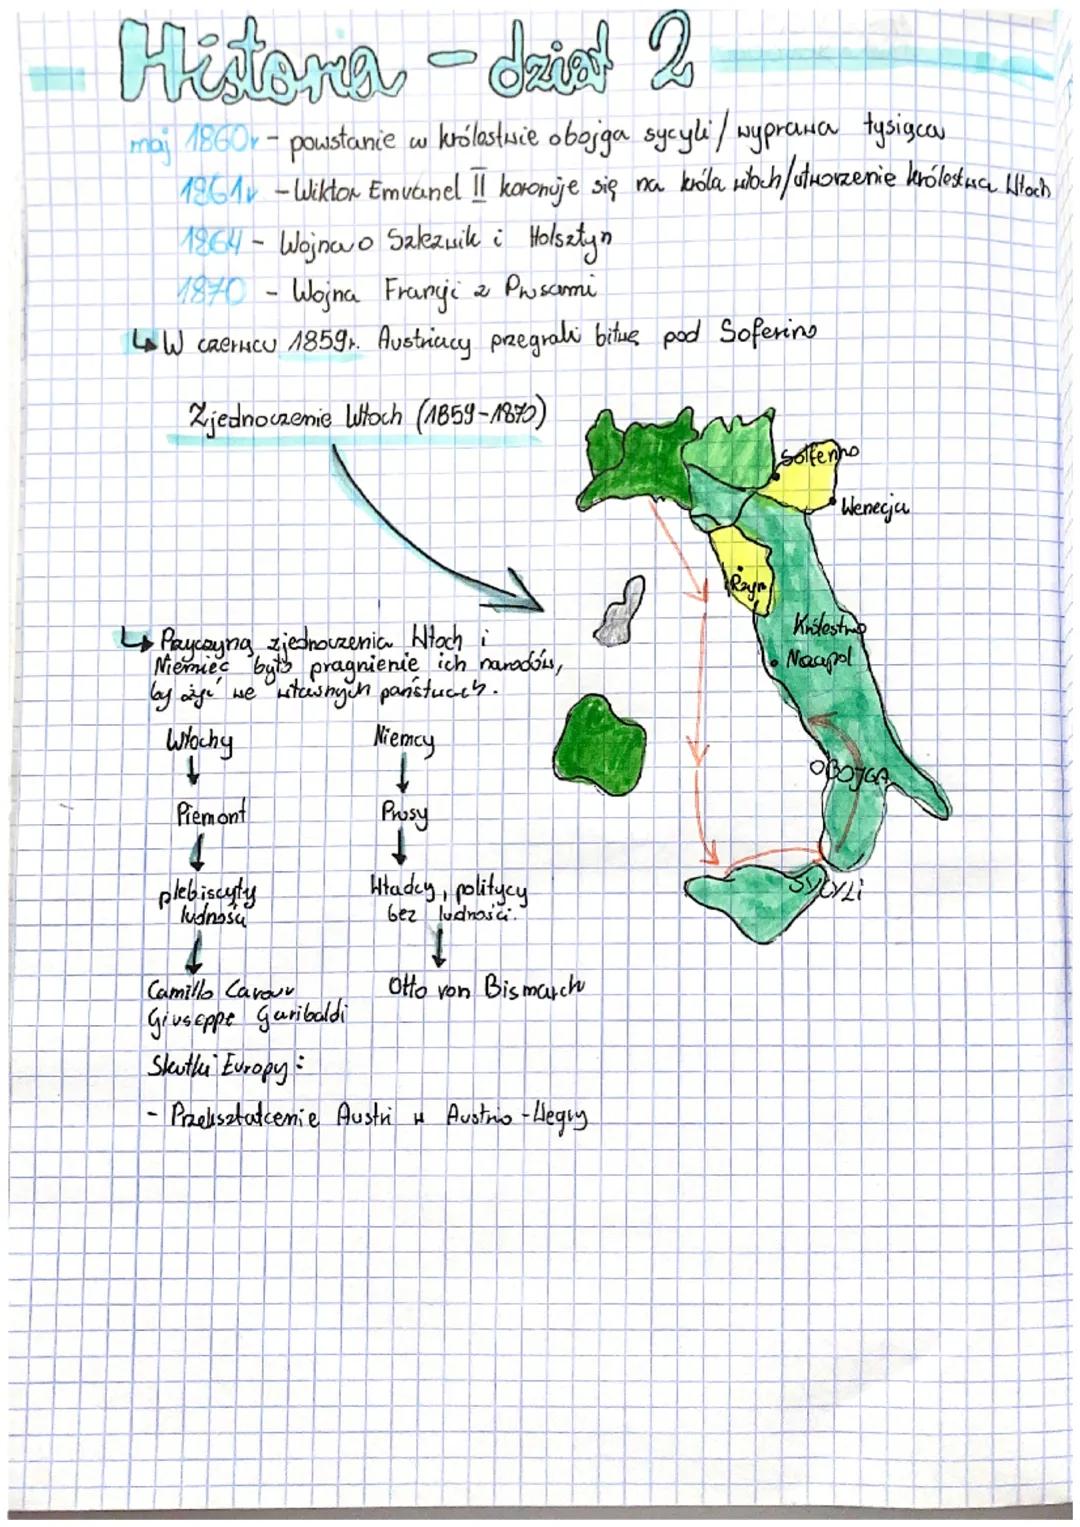 Historia - dział 2
maj 1860r - powstanie w królestwie obojga sycyli / wyprawa tysiąca
1861r - Wiktor Emvanel II koronuje się na króla włoch/utworzenie królestwa Włoch
1864 - Wojna o Szlezwik i Holsztyn
1870 - Wojna Francji z Prusami
↳ W czerwcu 1859r. Austriacy przegrali bitwę pod Soferino
Zjednoczenie Włoch (1859-1870)
Solferino
Wenecja
Rzym
Królestwo
Neapol
OBOJGA
SYCYLI
↳ Przyczyną zjednoczenia Włoch i
Niemiec było pragnienie ich narodów,
by żyć we własnych państwach.
Włochy Niemcy
Piemont Prusy
plebiscyty Władcy, politycy
ludności bez ludności.
Camillo Cavour Otto von Bismarck
Giuseppe Garibaldi
Skutki Europy:
- Przekształcenie Austri w Austrio-Węgry